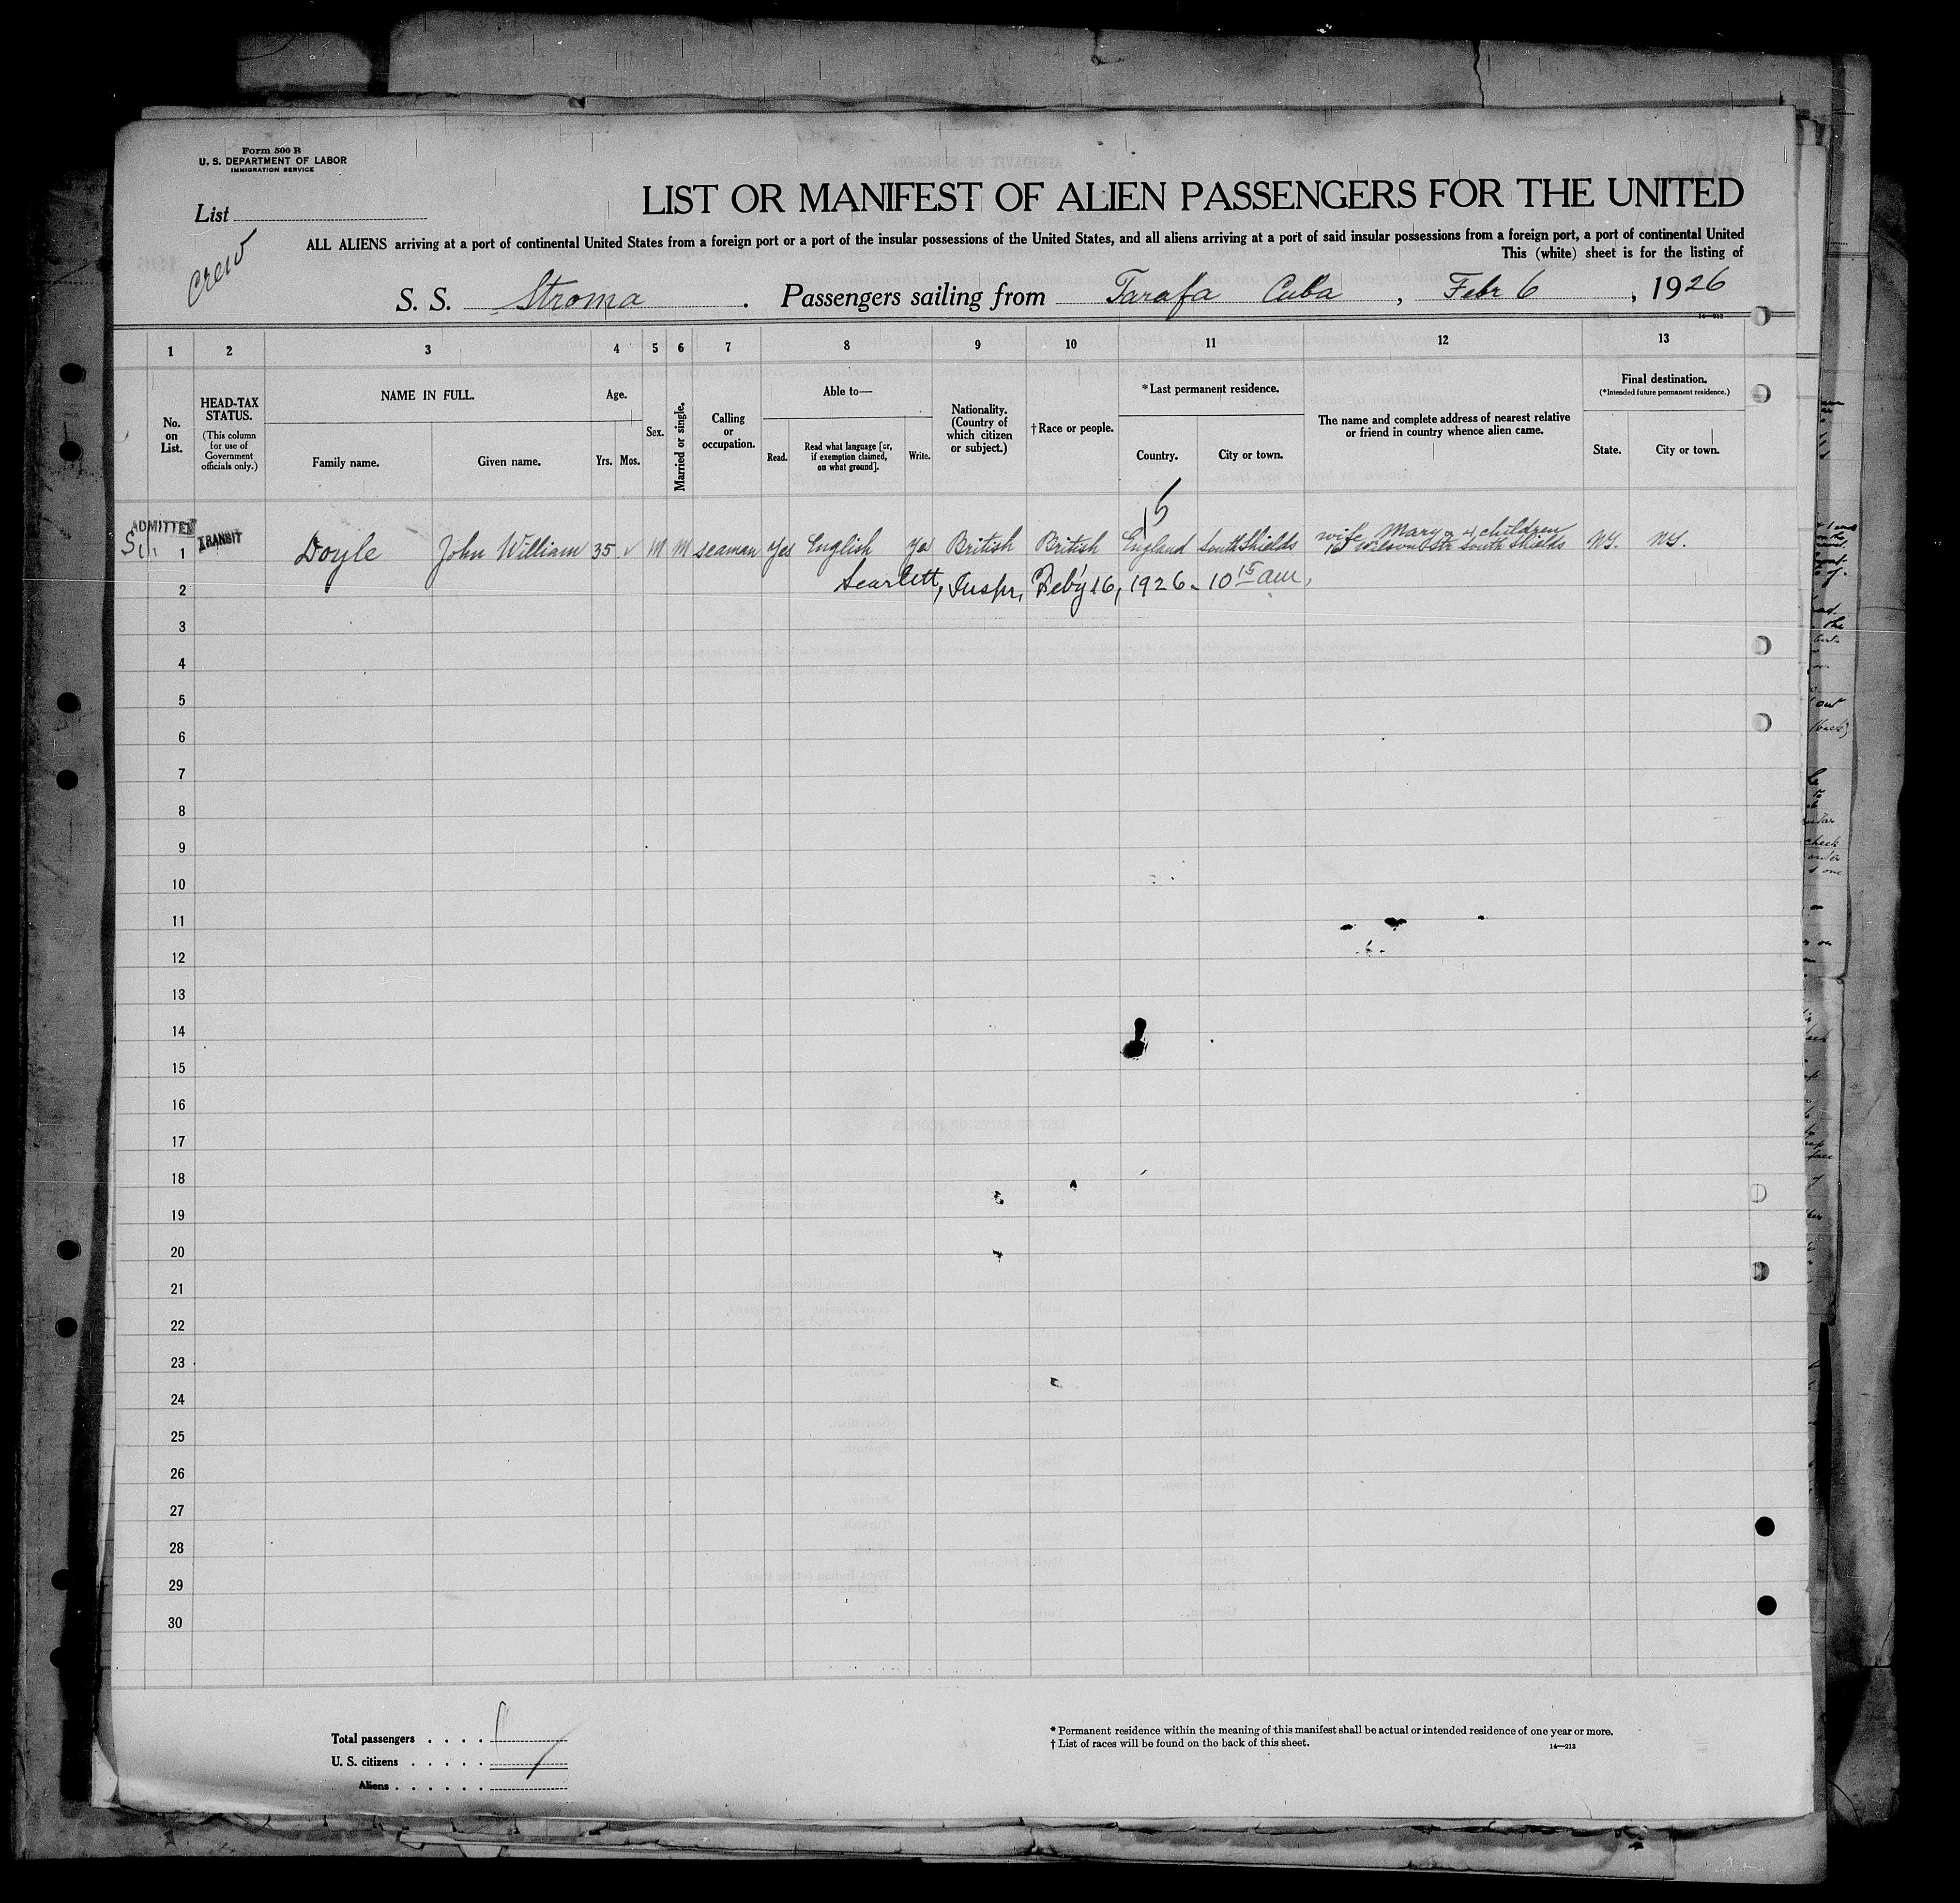 Form 500 B
U. S. DEPARTMENT OF LABOR
IMMIGRATION SERVICE
List
Crew
LIST OR MANIFEST OF ALIEN PASSENGERS FOR THE UNITED
ALL ALIENS arriving at a port of continental United States from a foreign port or a port of the insular possessions of the United States, and all aliens arriving at a port of said insular possessions from a foreign port, a port of continental United
This (white) sheet is for the listing of
S. S. Stroma. Passengers sailing from Tarafa Cuba, Febr 6, 1926
14—213
1 2 3 4 5 6 7 8 9 10 11 12 13
No. on List.
HEAD-TAX STATUS.
(This column for use of Government officials only.)
NAME IN FULL.
Family name. Given name.
Age.
Yrs. Mos.
Sex.
Married or single.
Calling or occupation.
Able to—
Read. Read what language [or, if exemption claimed, on what ground]. Write.
Nationality. (Country of which citizen or subject.)
†Race or people.
*Last permanent residence.
Country. City or town.
The name and complete address of nearest relative or friend in country whence alien came.
Final destination.
(*Intended future permanent residence.)
State. City or town.
15
ADMITTED
TRANSIT
1 Doyle John William 35 ✓ M M seaman Yes English Yes British British England South Shields wife Mary & 4 children
Wilson Str South Shields N.Y. N.Y.
2 Scarlett, Inspr, Feb'y 16, 1926 - 10 15 am,
3
4
5
6
7
8
9
10
11
12
13
14
15
16
17
18
19
20
21
22
23
24
25
26
27
28
29
30
Total passengers . . . .
U. S. citizens . . . . .
Aliens . . . . . .
* Permanent residence within the meaning of this manifest shall be actual or intended residence of one year or more.
† List of races will be found on the back of this sheet.
14—213